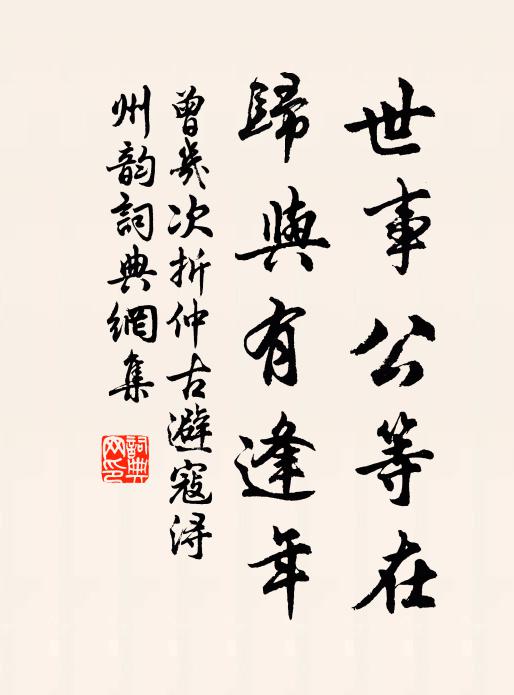 世事公等在
歸與有逢年
曾幾次折仲古避寇潯
州韵詞典網集
詞典网印